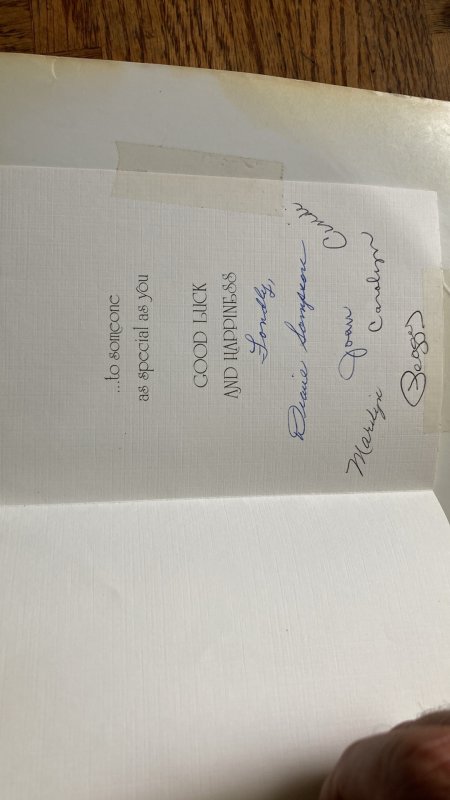 ...to someone
as special as you
GOOD LUCK
AND HAPPINESS
Fondly,
Diane Sampson
Joan
Carolyn
Marilyn
Peggy